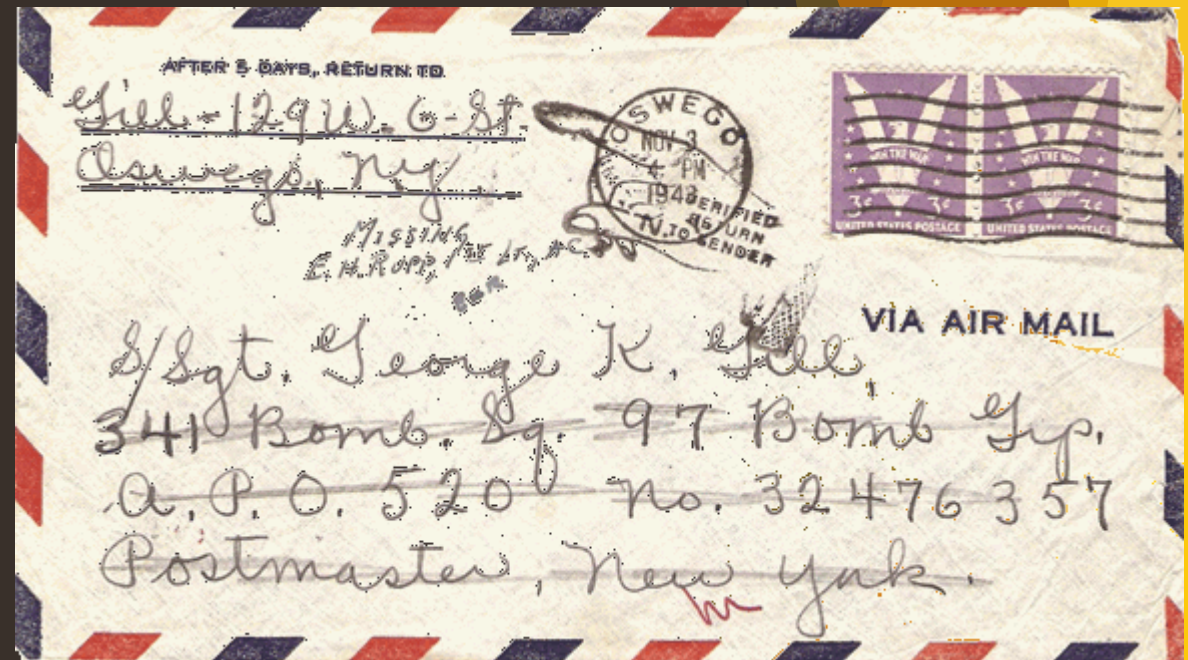 AFTER 5 DAYS, RETURN TO
Gill - 129 W. 6 - St.
Oswego, N.Y.
OSWEGO
NOV 3
4 PM
1943
N.
VERIFIED
RETURN
TO SENDER
MISSING
E. H. ROPP, 1ST LT, A.C.
WIN THE WAR
3¢ 3¢
UNITED STATES POSTAGE
WIN THE WAR
3¢ 3¢
UNITED STATES POSTAGE
VIA AIR MAIL
S/Sgt. George K. Gill,
341 Bomb. Sq. 97 Bomb Grp.
A.P.O. 520 No. 32476357
Postmaster, New York.